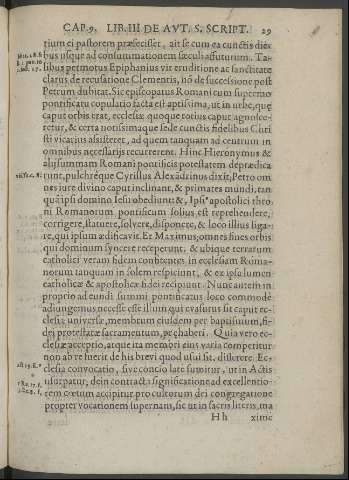 CAP. 9. LIB. III DE AVT. S. SCRIPT. 29
tium ei pastorem præfecisset, ait se cum ea cunctis die-
bus usque ad consummationem sæculi affuturum. Ta-
libus permotus Epiphanius vir eruditione ac sanctitate
clarus de recusatione Clementis, nō de successione post
Petrum dubitat. Sic episcopatus Romani cum supremo
pontificatu copulatio facta est aptissima, ut in urbe, quę
caput orbis erat, ecclesiæ quoque totius caput agnosce-
retur, & certa notissimaque sede cunctis fidelibus Chri
sti vicarius assisteret, ad quem tanquam ad centrum in
omnibus necessariis recurrerent. Hinc Hieronymus &
alij summam Romani pontificis potestatem deprædica
runt, pulchréque Cyrillus Alexādrinus dixit, Petro om
nes iure divino caput inclinant, & primates mundi, tan
quā ipsi domino Iesu obediunt: &, Ipsi apostolici thro
ni Romanorum pontificum solius est reprehendere,
corrigere, statuere, solvere, disponere, & loco illius liga-
re, qui ipsum ædificavit. Et Maximus, omnes fines orbis
qui dominum syncere receperunt, & ubique terrarum
catholici veram fidem confitentes in ecclesiam Roma-
norum tanquam in solem respiciunt, & ex ipsa lumen
catholicæ & apostolicæ fidei recipiunt. Nunc autem in
proprio adeundi summi pontificatus loco commodè
adiungemus necesse esse illum qui evasurus sit caput ec-
clesiæ universæ, membrum eiusdem per baptismum, fi-
dei protestatæ sacramentum, pręhaberi. Quia vero ec-
clesiæ acceptio, atque ita membri eius varia comperitur
non ab re fuerit de his brevi quod usui sit, disserere. Ec-
clesia convocatio, sive concio late sumitur, ut in Actis
usurpatur, dein contracta significatione ad excellentio-
rem cœtum accipitur pro cultorum dei congregatione
propter vocationem supernam, sic ut in sacris literis, ma
H h xime